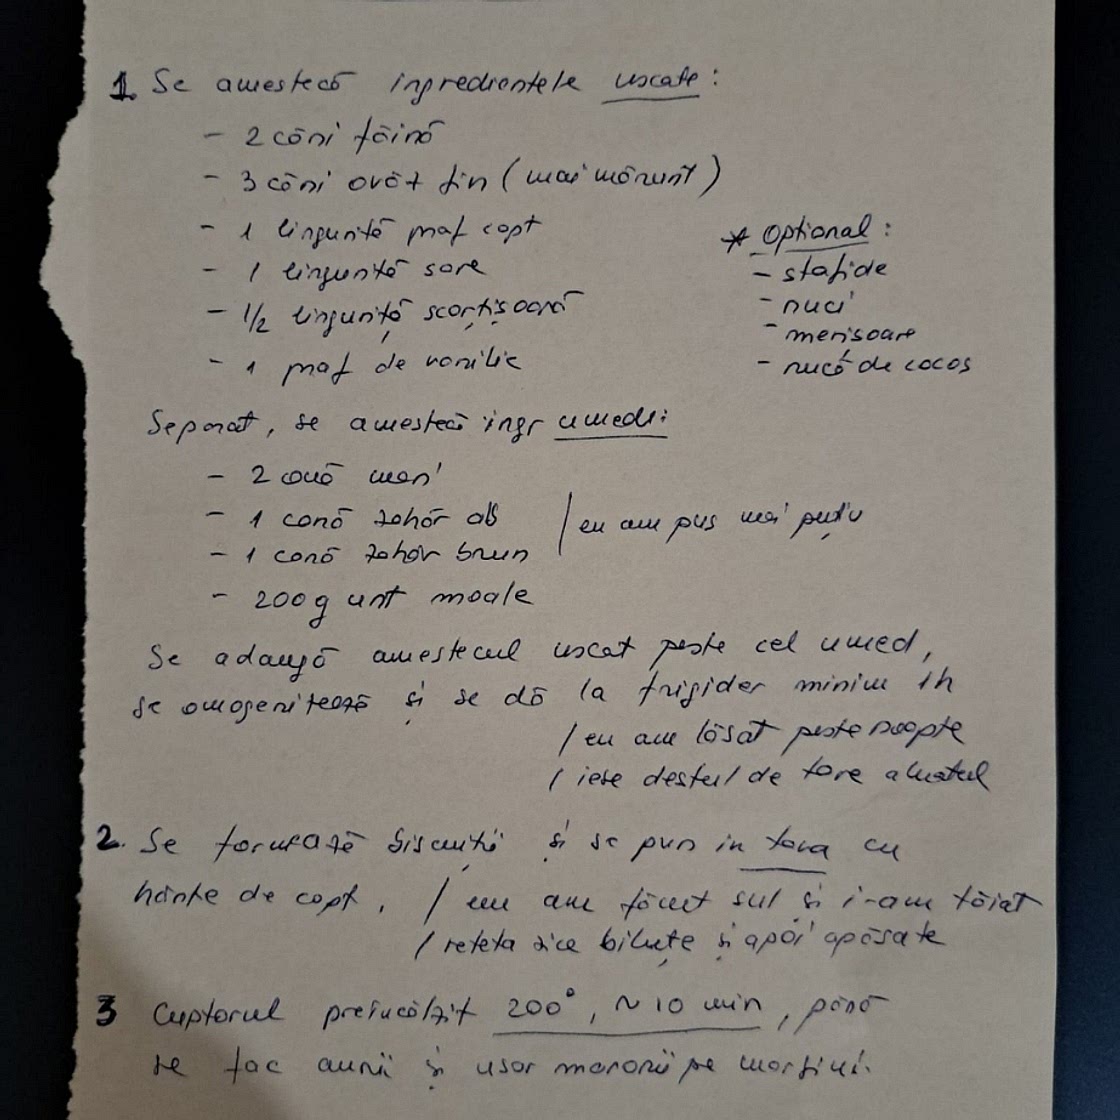 1. Se amestecă ingredientele uscate:
- 2 căni făină
- 3 căni ovăz fin (mai mărunt)
- 1 linguriță praf copt
- 1 linguriță sare
- 1/2 linguriță scorțișoară
- 1 praf de vanilie
* Optional:
- stafide
- nuci
- merisoare
- nucă de cocos
Separat, se amestecă ingr umede:
- 2 ouă mari
- 1 cană zahăr alb
- 1 cană zahăr brun
/ eu am pus mai puțin
- 200g unt moale
Se adaugă amestecul uscat peste cel umed,
se omogenizează și se dă la frigider minim 1h
/ eu am lăsat peste noapte
/ iese destul de tare aluatul
2. Se formează biscuiții și se pun in tava cu
hârtie de copt. / eu am făcut sul și i-am tăiat
/ reteta zice biluțe și apoi apăsate
3 Cuptorul preîncălzit 200°, ~10 min, până
se fac aurii și usor maronii pe margini.